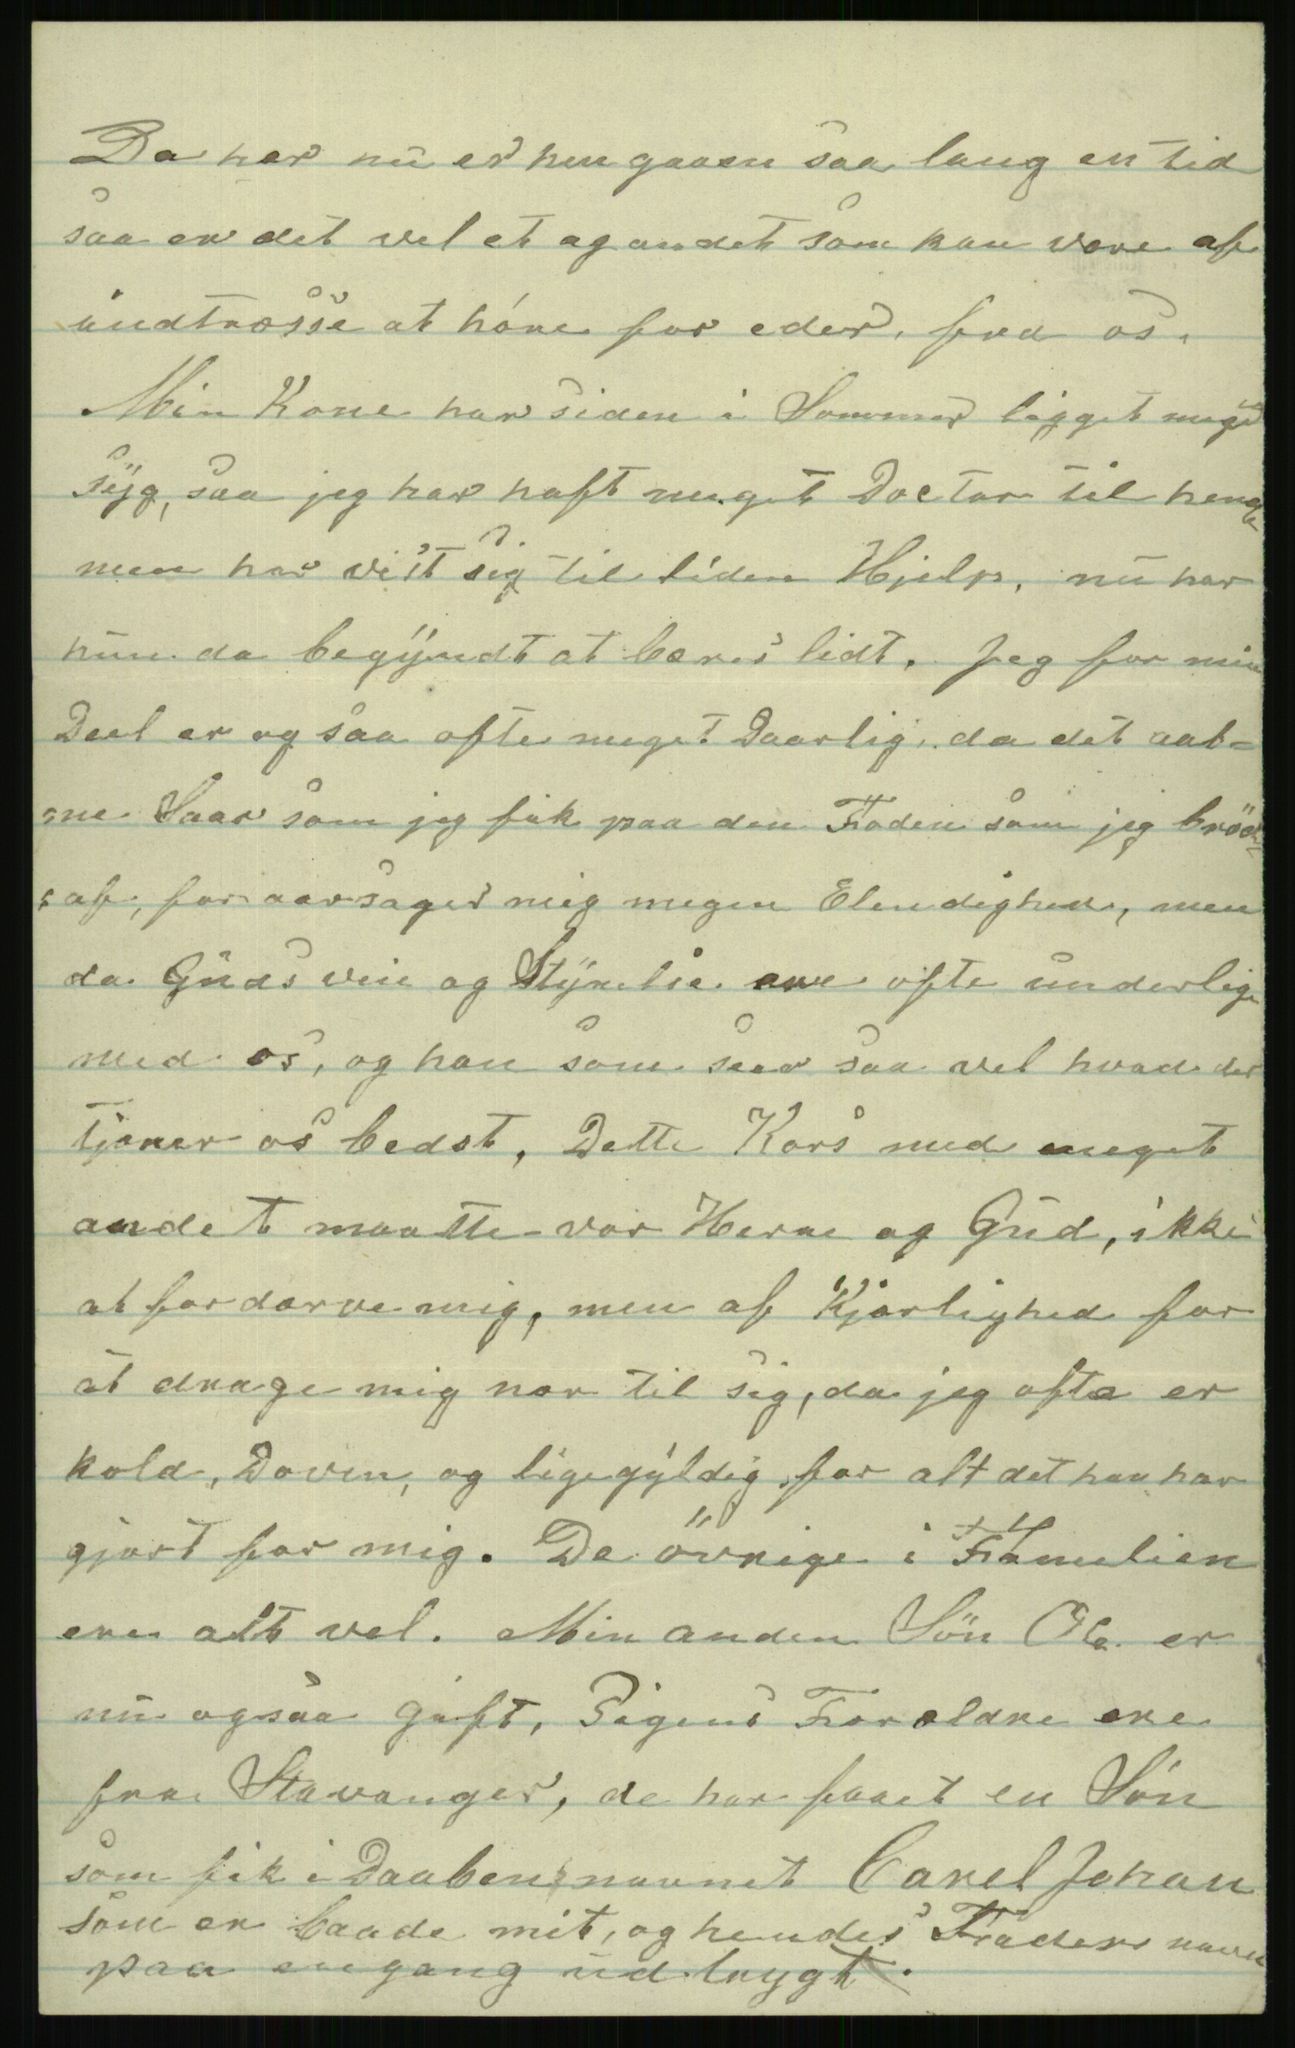 Da her nu er hengaaen saa lang en tid
saa er det vel et og andet som kan være af
indtræsse at høre for eder, fra os.
Min Kone har siden i Sommer ligget meget
syg, saa jeg har haft meget Doctor til hende
men har vist sig til liden Hjelp, nu har
hun da begyndt at beres lidt. Jeg for min
Deel er og saa ofte meget Daarlig, da det aab-
ne Saar som jeg fik paa den Foden som jeg bröd
af, foraarsager mig megen Elendighed, men
da Guds veie og Styrelse ere ofte underlige
med os, og han som seer saa vel hvad der
tjener os bedst, Dette Kors med meget
andet maatte vor Herre og Gud, ikke
at fordærve mig, men af Kjærlighed for
at drage mig nær til sig, da jeg ofte er
kold, Doven, og ligegyldig for alt det han har
gjort for mig. De övrige i Familien
ere alt vel. Min anden Sön Ole er
nu ogsaa gift, Pigens Forældre ere
fra Stavanger, de har faaet en Sön
som fik i Daaben navnet Carel Johan
som er baade mit, og hendes Faders navn
paa engang udtrygt.